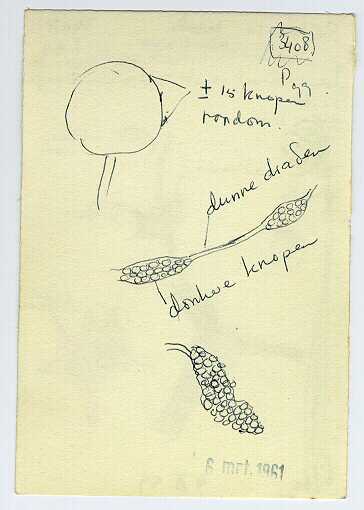 3408
Pgg.
± 15 knopen
rondom.
dunne draden
donkere knopen
6 mrt. 1961